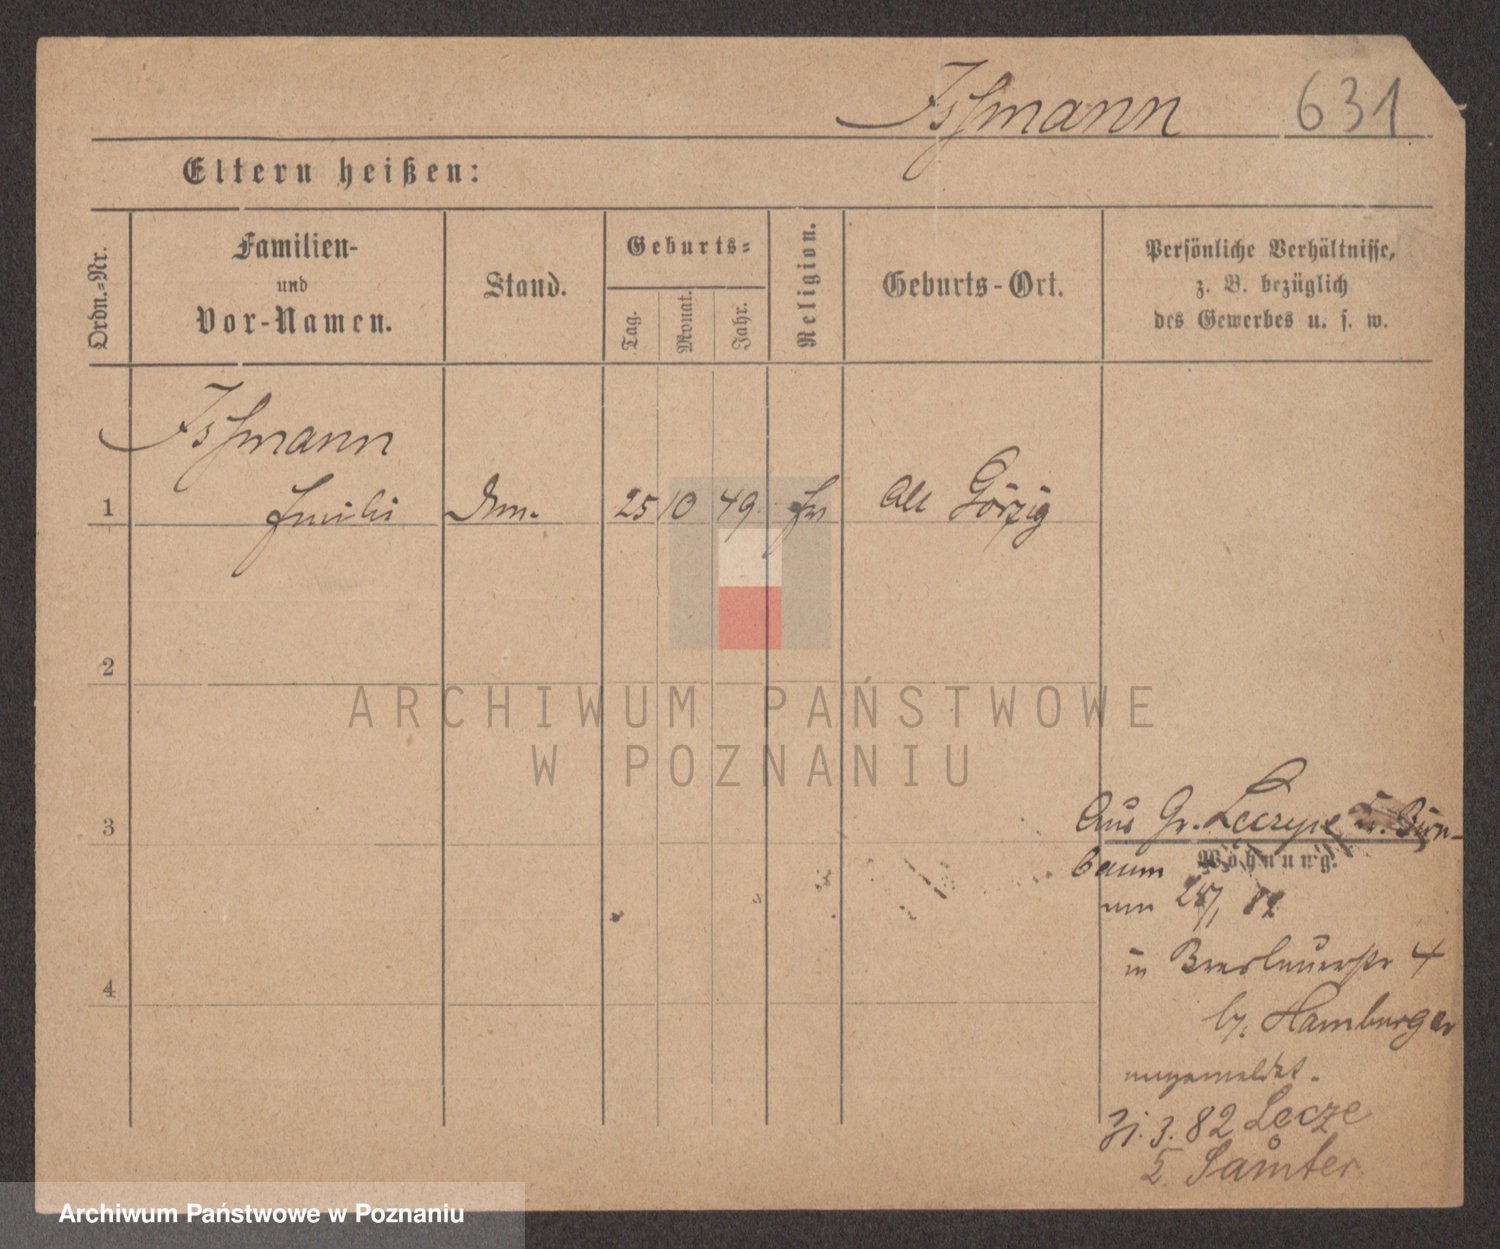 Issmann 631
Eltern heißen:
Ordn.-Nr.
Familien-
und
Vor-Namen.
Stand.
Geburts-
Tag.
Monat.
Jahr.
Religion.
Geburts-Ort.
Persönliche Verhältnisse,
z. B. bezüglich
des Gewerbes u. s. w.
Issmann
1 25 10 49 Alt Görzig
2
ARCHIWUM PAŃSTWOWE
W POZNANIU
3
Aus Gr. b. Birn-
baum
Wohnung.
in Breslauerstr 4
by. Hamburger
angemeldet.
31. 3. 82
Z. Samter
4
Archiwum Państwowe w Poznaniu